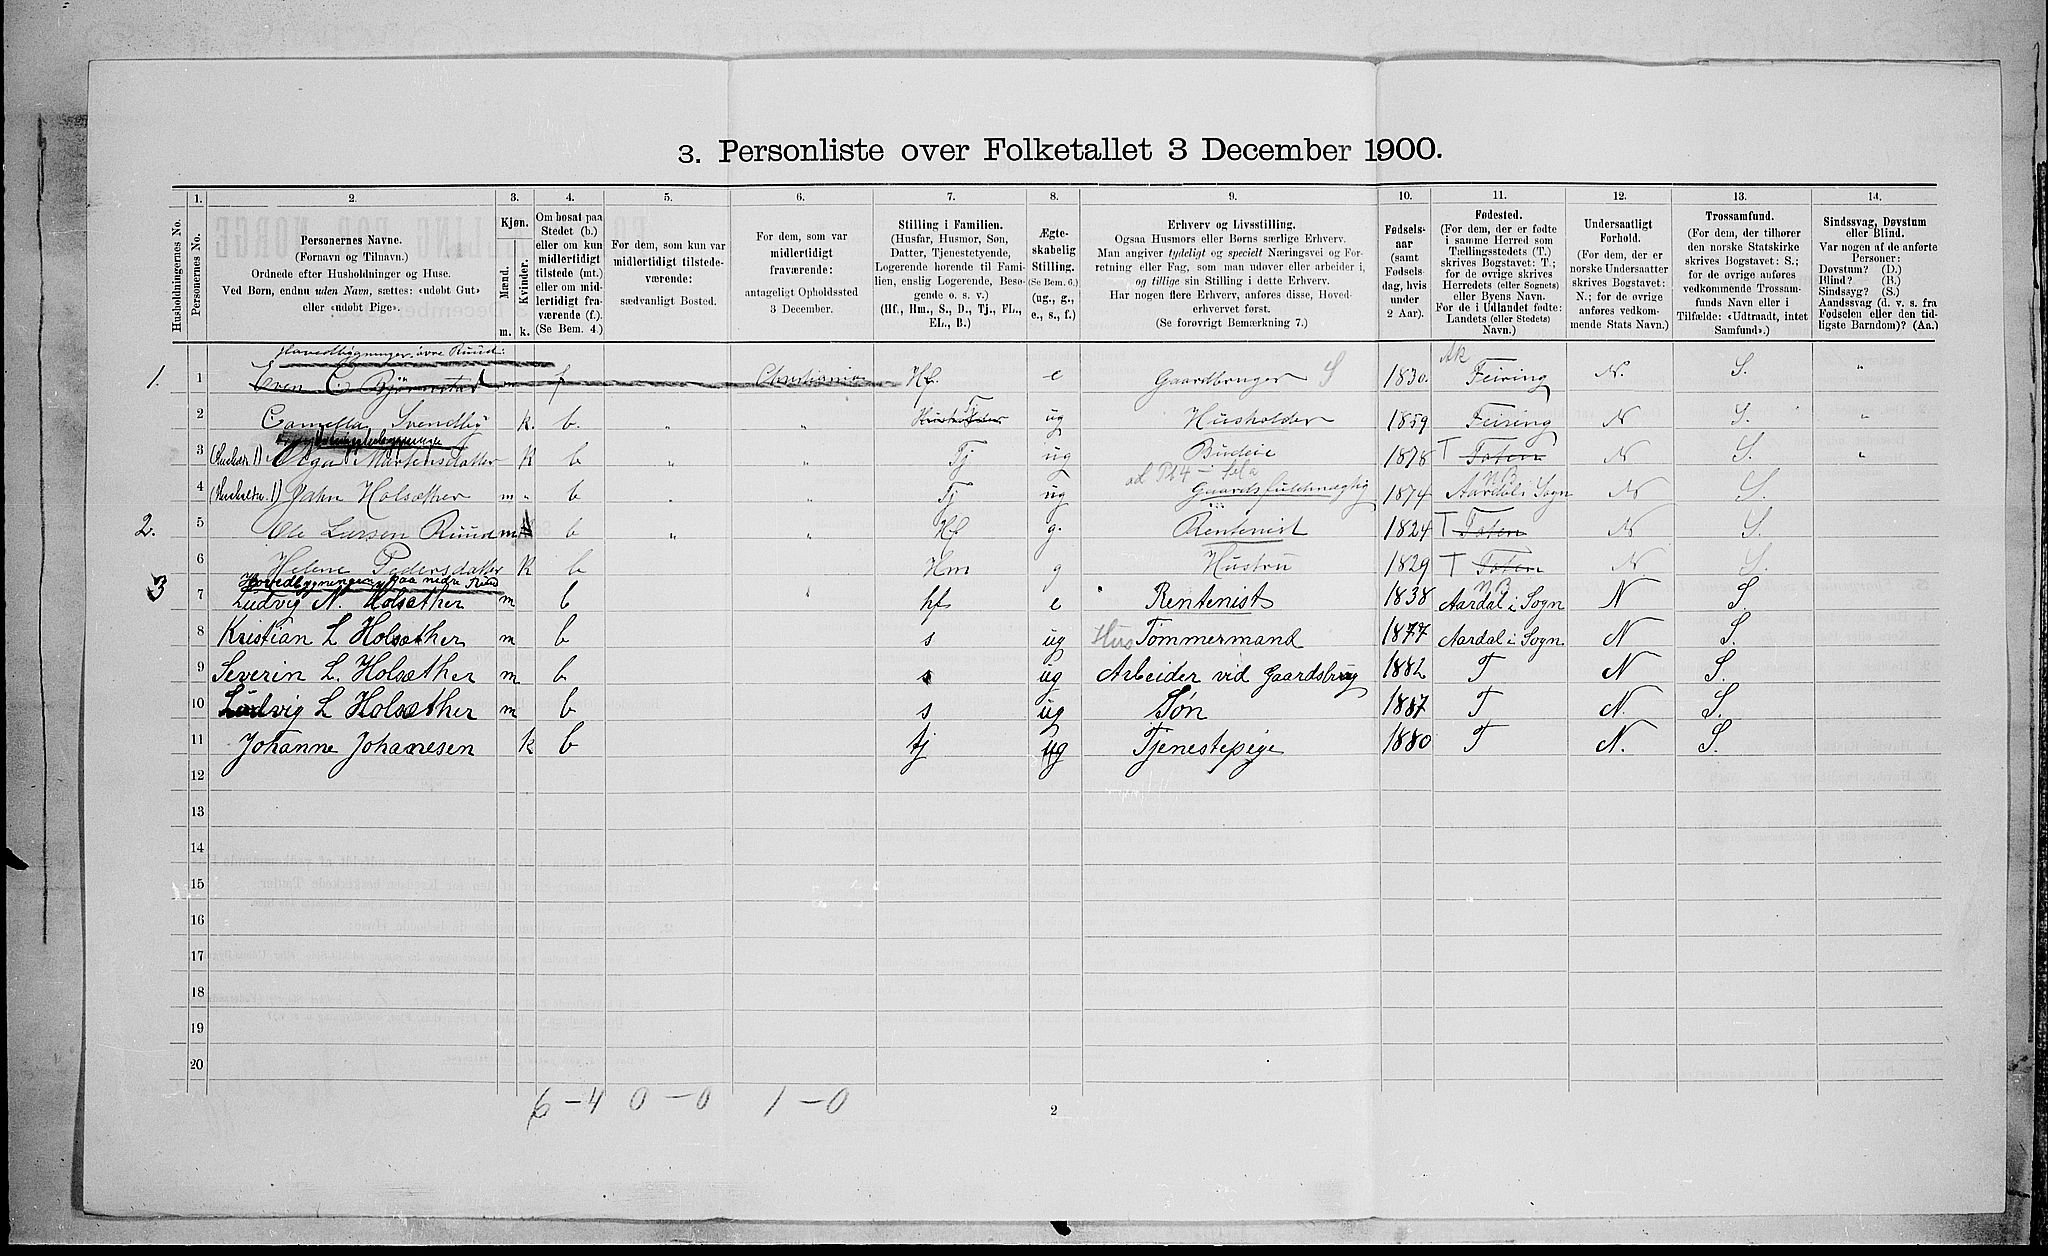 3. Personliste over Folketallet 3 December 1900.
1. 2. 3. 4. 5. 6. 7. 8. 9. 10. 11. 12. 13. 14.
Husholdningernes No.
Personernes No.
Personernes Navne.
(Fornavn og Tilnavn.)
Ordnede efter Husholdninger og Huse.
Ved Børn, endnu uden Navn, sættes: «udøbt Gut»
eller «udøbt Pige».
Kjøn.
Mænd.
Kvinder.
m. k.
Om bosat paa
Stedet (b.)
eller om kun
midlertidigt
tilstede (mt.)
eller om mid-
lertidigt fra-
værende (f.)
(Se Bem. 4.)
For dem, som kun var
midlertidigt tilstede-
værende:
sædvanligt Bosted.
For dem, som var
midlertidigt
fraværende:
antageligt Opholdssted
3 December.
Stilling i Familien.
(Husfar, Husmor, Søn,
Datter, Tjenestetyende,
Logerende hørende til Fami-
lien, enslig Logerende, Besø-
gende o. s. v.)
(Hf., Hm., S., D., Tj., FL.,
EL., B.)
Ægte-
skabelig
Stilling.
(Se Bem. 6.)
(ug., g.,
e., s., f.)
Erhverv og Livsstilling.
Ogsaa Husmors eller Børns særlige Erhverv.
Man angiver tydeligt og specielt Næringsvei og For-
retning eller Fag, som man udøver eller arbeider i,
og tillige sin Stilling i dette Erhverv.
Har nogen flere Erhverv, anføres disse, Hoved-
erhvervet først.
(Se forøvrigt Bemærkning 7.)
Fødsels-
aar
(samt
Fødsels-
dag, hvis
under
2 Aar).
Fødested.
(For dem, der er fødte
i samme Herred som
Tællingsstedets (T.)
skrives Bogstavet: T.;
for de øvrige skrives
Herredets (eller Sognets)
eller Byens Navn.
For de i Udlandet fødte:
Landets (eller Stedets)
Navn.)
Undersaatligt
Forhold.
(For dem, der er
norske Undersaatter
skrives Bogstavet:
N.; for de øvrige
anføres vedkom-
mende Stats Navn.)
Trossamfund.
(For dem, der tilhører
den norske Statskirke
skrives Bogstavet: S.;
for de øvrige anføres
vedkommende Trossam-
funds Navn eller i
Tilfælde: «Udtraadt, intet
Samfund».)
Sindssvag, Døvstum
eller Blind.
Var nogen af de anførte
Personer:
Døvstum? (D.)
Blind? (B.)
Sindssyg? (S.)
Aandssvag (d. v. s. fra
Fødselen eller den tid-
ligste Barndom)? (Aa.)
Hovedbygningen øvre Ruud:
1. 1 Even Bjørnstad m f Christiania Hf. e Gaardbruger S 1830 Ak Feiring N. S. "
2 Camella Svendby k. b. " " Husholder Tj ug Husholder 1859 Feiring N S. "
3 (Hushold 1) Olga Martensdatter k b " " Tj ug Budeie 1878 T Toten N S. "
4 (Husholdn. 1) John Holsæther m " b Tj ug Gaardsfuldmægtig 1874 Aardal i Sogn N S.
2. 5 Ole Larsen Ruud m b " " Hf g. Rentenist 1824 T Toten N S.
6 Helene Pedersdatter k b Hm g Hustru 1829 T Toten N S.
Hovedbygningen paa nedre Ruud
3 7 Ludvig N. Holsæther m b hf e Rentenist 1838 Aardal i Sogn N S.
8 Kristian L Holsæther m b s ug Hus Tømmermand 1877 Aardal i Sogn N S.
9 Severin L. Holsæther m b s ug Arbeider vid Gaardsbrug 1882 T N S.
10 Ludvig L Holsæther m b s ug Søn 1887 T N. S.
11 Johanne Johanesen k b tj ug Tjenestepige 1880 T N. S.
12
13
14
15
16
17
18
19
20
6 – 4 0 – 0 1 – 0
2